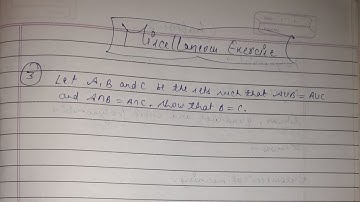 Miscellaneous Exercise
3 Let A, B and C be the sets such that A∪B = A∪C
and A∩B = A∩C. Show that B = C.